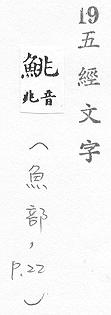 19五經文字
鮡
音兆
(魚部,P.22)